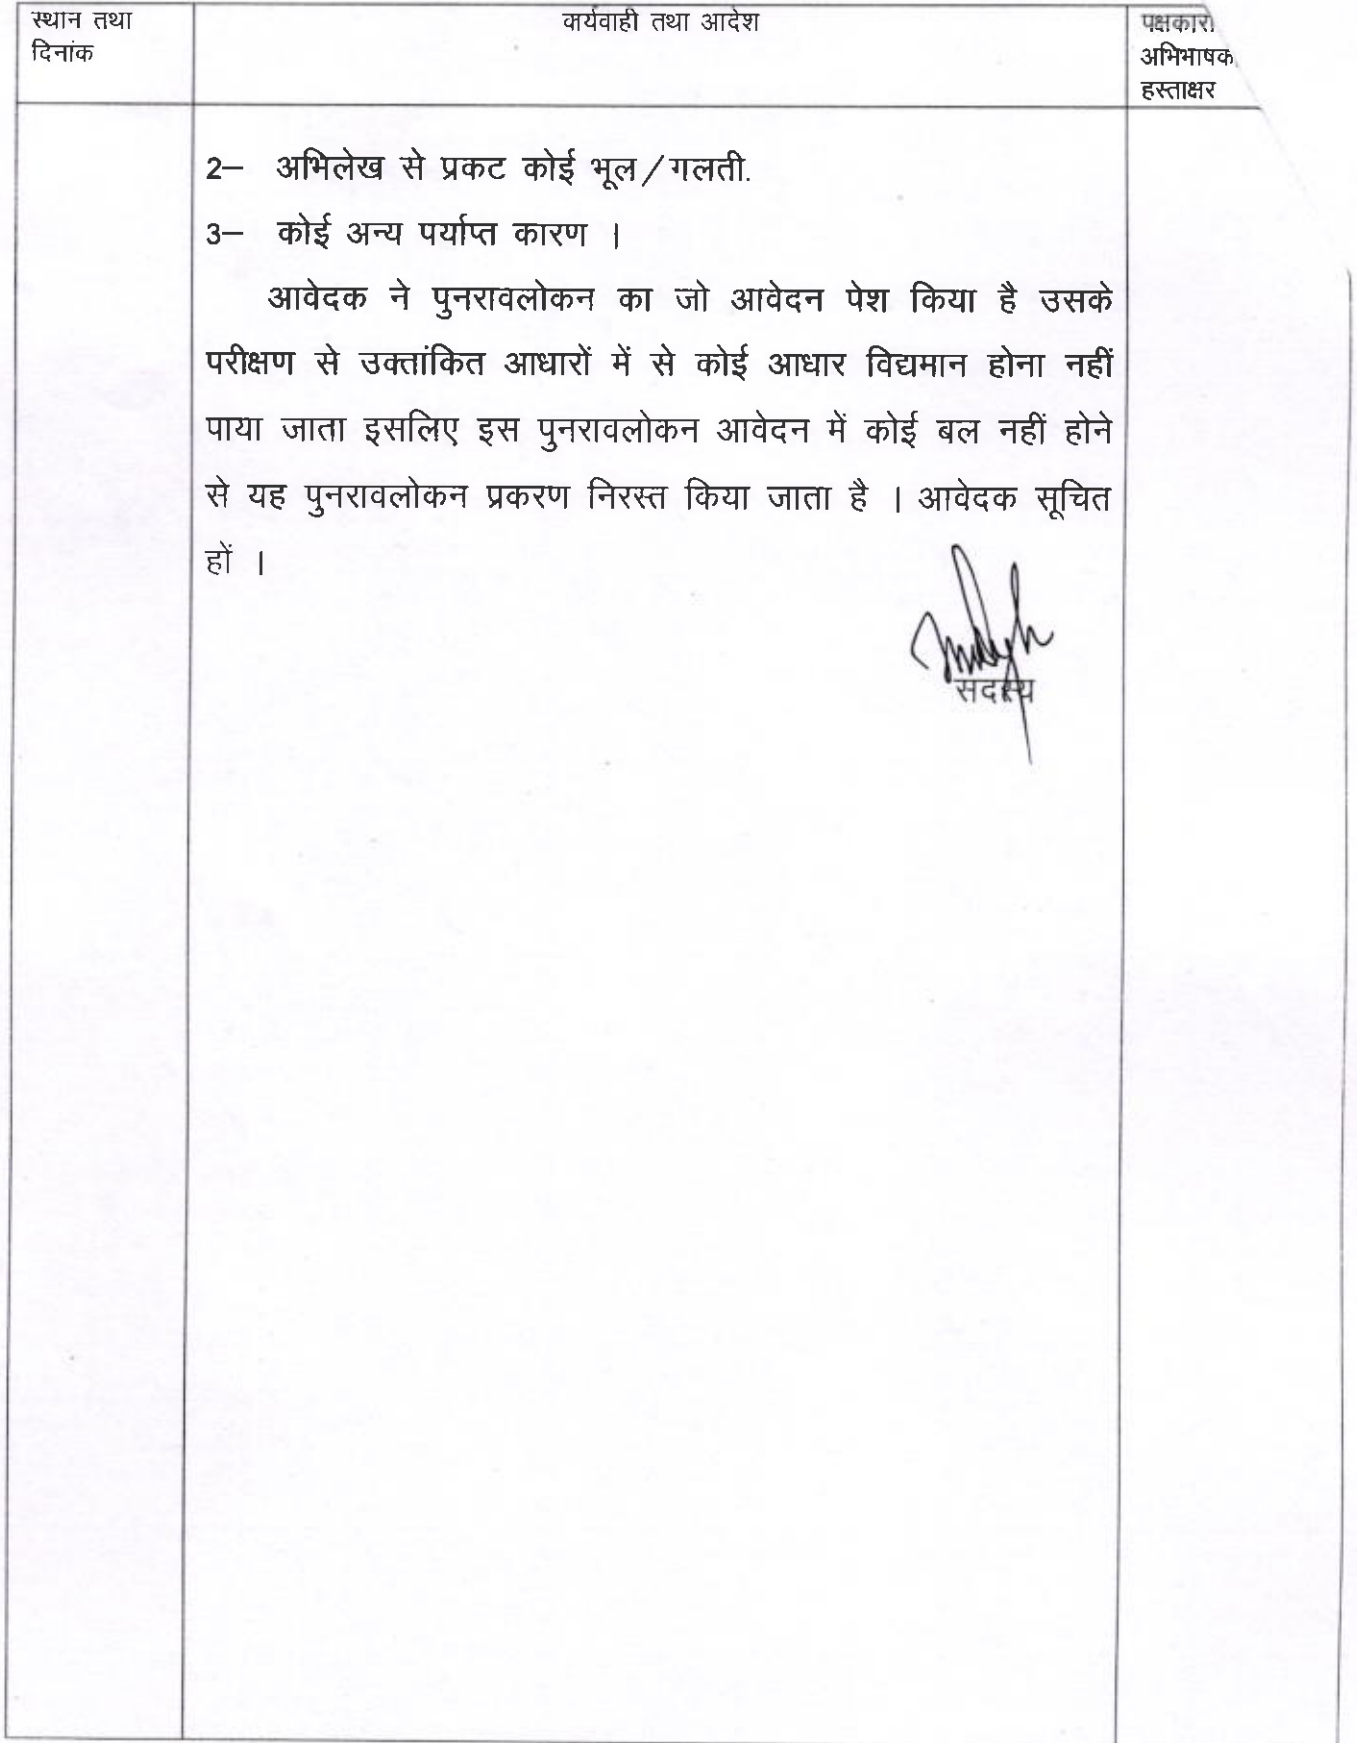 स्थान तथा
दिनांक
कार्यवाही तथा आदेश
अभिभाषक
हस्ताक्षर
2– अभिलेख से प्रकट कोई भूल/गलती.
3– कोई अन्य पर्याप्त कारण ।
आवेदक ने पुनरावलोकन का जो आवेदन पेश किया है उसके
परीक्षण से उक्तांकित आधारों में से कोई आधार विद्यमान होना नहीं
पाया जाता इसलिए इस पुनरावलोकन आवेदन में कोई बल नहीं होने
से यह पुनरावलोकन प्रकरण निरस्त किया जाता है । आवेदक सूचित
हों ।
सदस्य